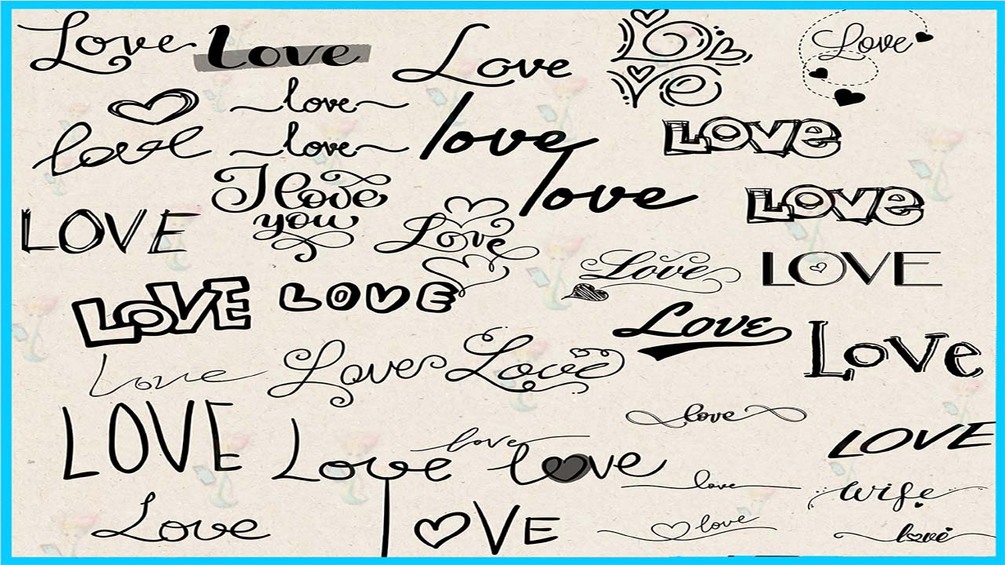 Love
Love
Love
LOVE
Love
love
love
love
love
LOVE
I love
you
love
LOVE
LOVE
Love
Love
LOVE
LOVE
LOVE
Love
Love
Love
Love
Love
love
LOVE
Love
love
love
LOVE
love
wife
Love
LOVE
love
love